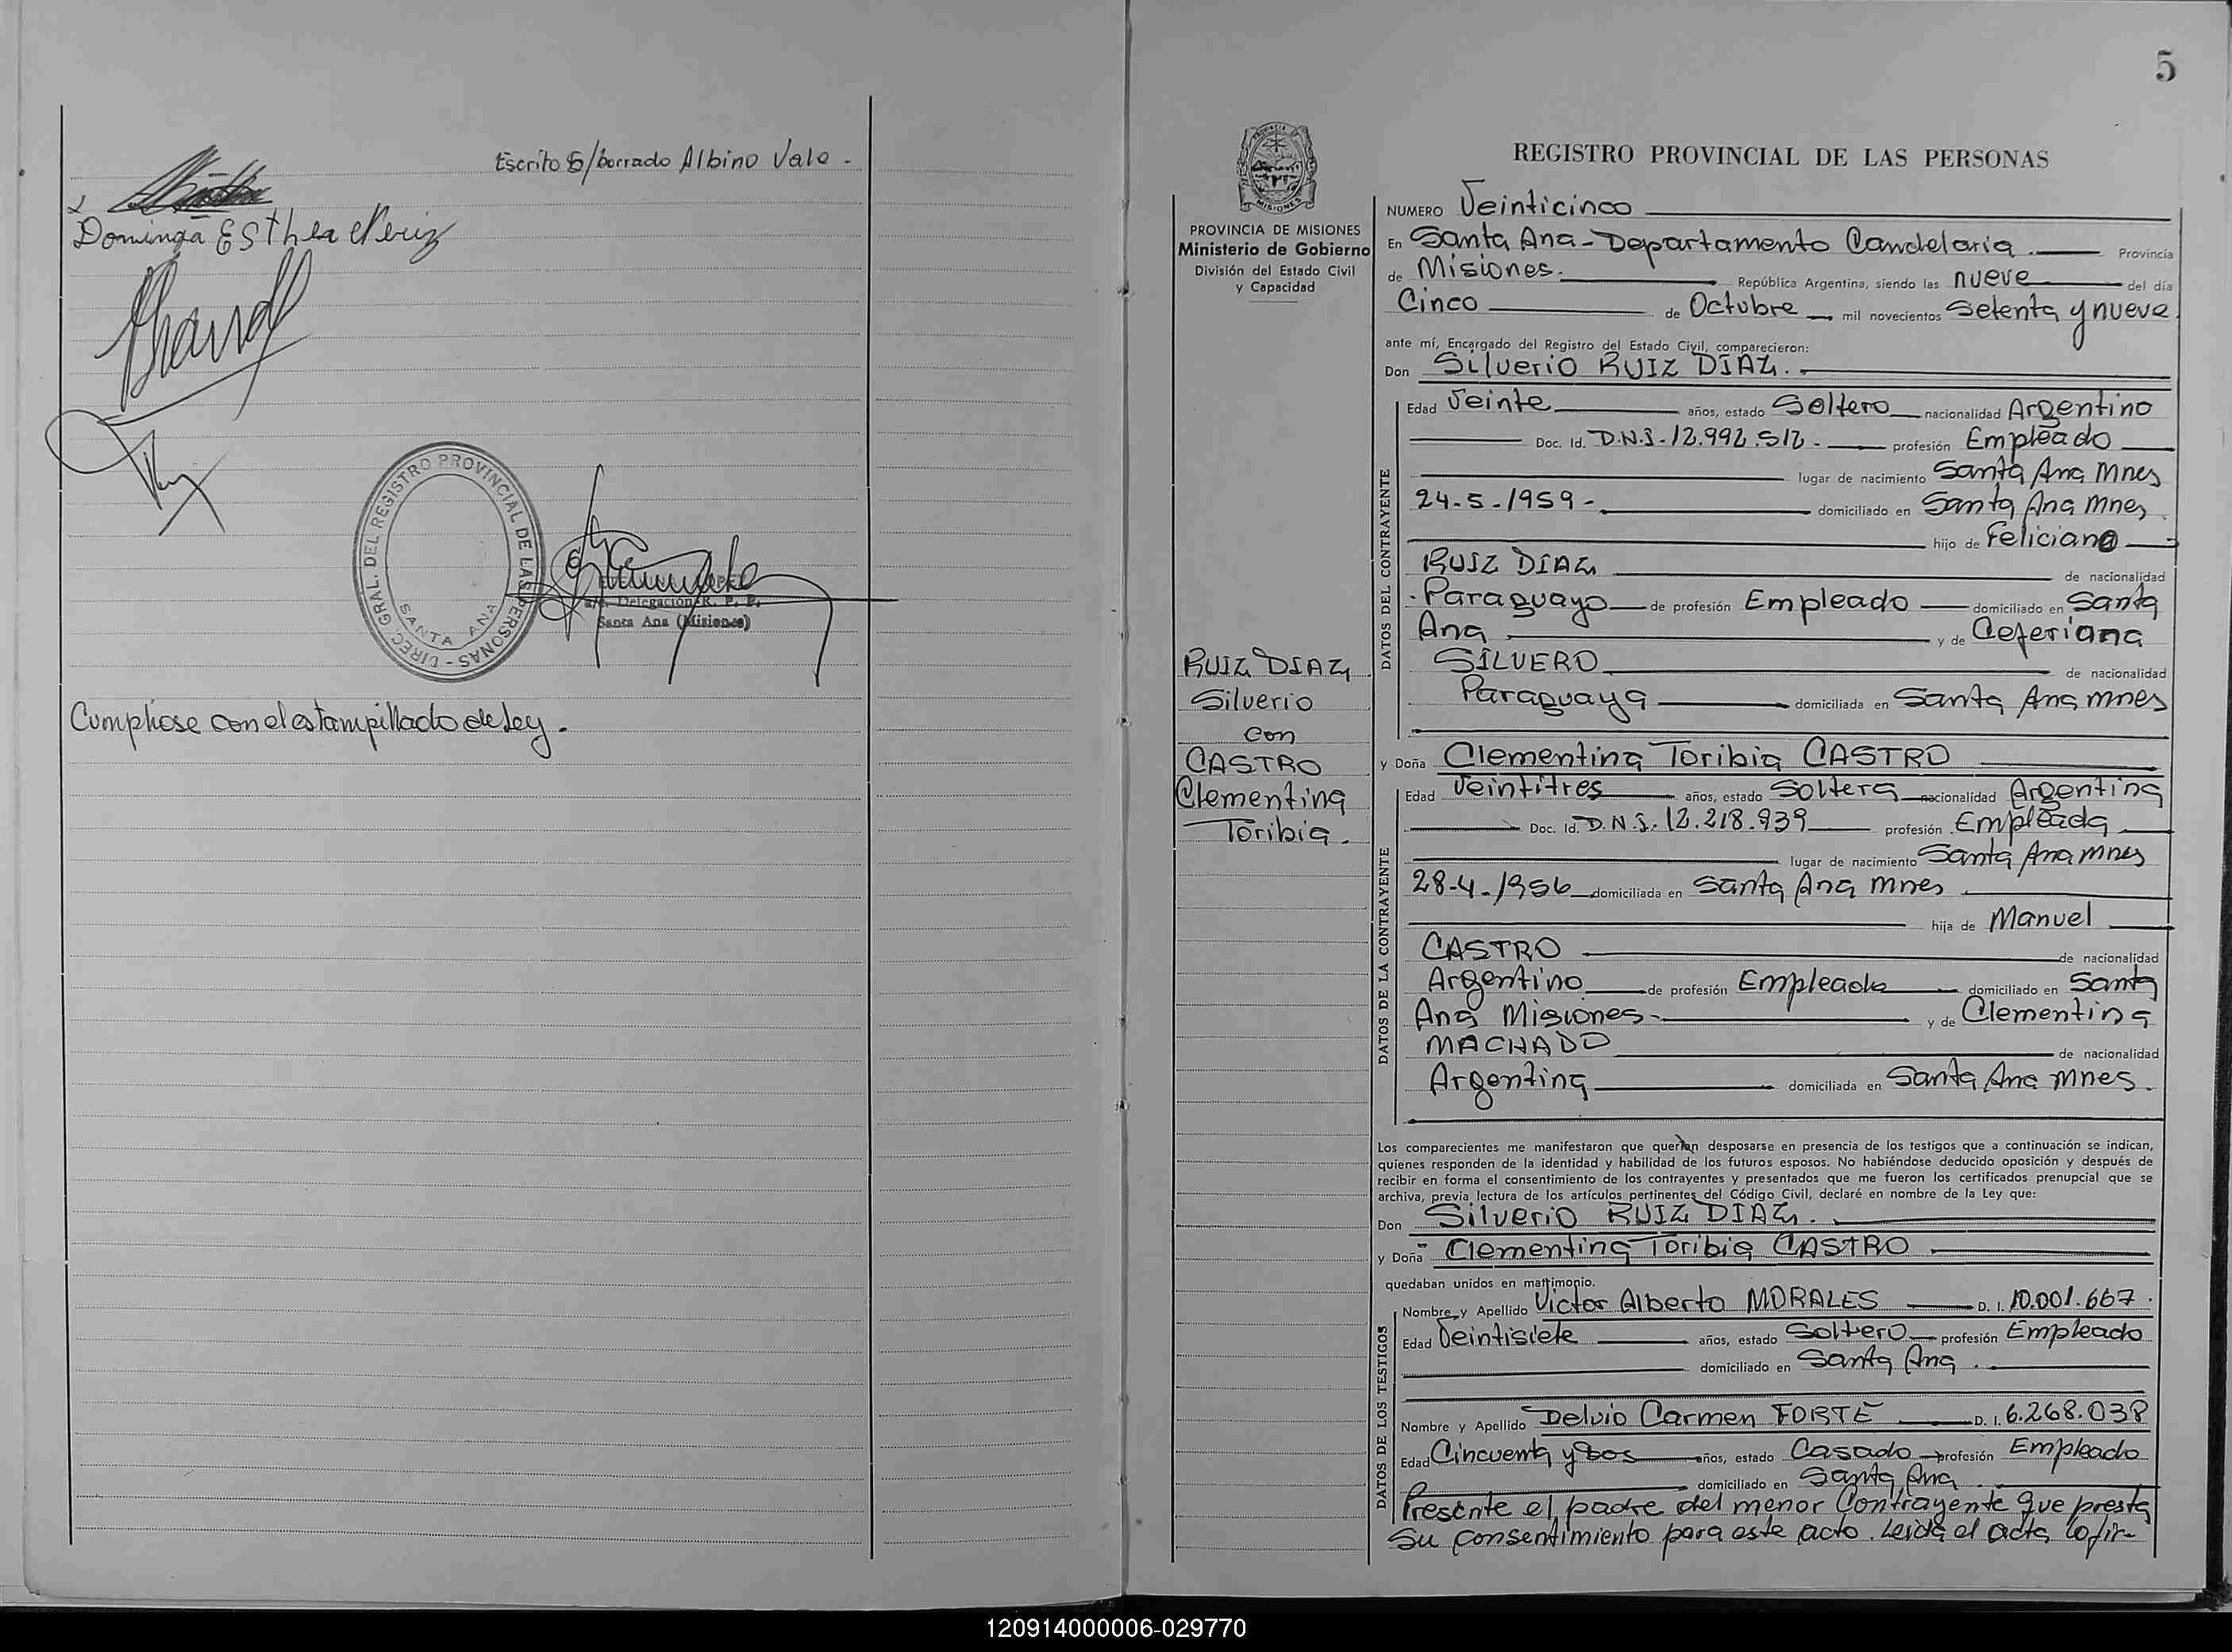 Escrito S/borrado Albino Vale -
Dominga Esther
DIREC. GRAL. DEL REGISTRO PROVINCIAL DE LAS PERSONAS -
SANTA ANA
Delegación R. P. P.
Santa Ana (Misiones)
Cumpliose con el estampillado de Ley.
5
PROVINCIA DE MISIONES
Ministerio de Gobierno
División del Estado Civil
y Capacidad
RUIZ DIAZ
Silverio
con
CASTRO
Clementina
Toribia.
REGISTRO PROVINCIAL DE LAS PERSONAS
NUMERO Veinticinco
En Santa Ana - Departamento Candelaria Provincia
de Misiones. República Argentina, siendo las nueve del día
Cinco de Octubre mil novecientos Setenta y nueve
ante mí, Encargado del Registro del Estado Civil, comparecieron:
Don Silverio RUIZ DIAZ.
DATOS DEL CONTRAYENTE
Edad Veinte años, estado Soltero nacionalidad Argentino
Doc. Id. D.N.I. 12.992.512. profesión Empleado
lugar de nacimiento Santa Ana Mnes
24-5-1959- domiciliado en Santa Ana Mnes
hijo de Feliciano
RUIZ DIAZ de nacionalidad
Paraguayo de profesión Empleado domiciliado en Santa
Ana y de Ceferiana
SILVERO de nacionalidad
Paraguaya domiciliada en Santa Ana mnes
y Doña Clementina Toribia CASTRO
DATOS DE LA CONTRAYENTE
Edad Veintitres años, estado Soltera nacionalidad Argentina
Doc. Id. D.N.I. 12.218.939 profesión Empleada
lugar de nacimiento Santa Ana Mnes
28-4-1956 domiciliada en Santa Ana Mnes
hija de Manuel
CASTRO de nacionalidad
Argentino de profesión Empleado domiciliado en Santa
Ana Misiones- y de Clementina
MACHADO de nacionalidad
Argentina domiciliada en Santa Ana Mnes.
Los comparecientes me manifestaron que querían desposarse en presencia de los testigos que a continuación se indican,
quienes responden de la identidad y habilidad de los futuros esposos. No habiéndose deducido oposición y después de
recibir en forma el consentimiento de los contrayentes y presentados que me fueron los certificados prenupcial que se
archiva, previa lectura de los artículos pertinentes del Código Civil, declaré en nombre de la Ley que:
Don Silverio RUIZ DIAZ.
y Doña Clementina Toribia CASTRO
quedaban unidos en matrimonio.
DATOS DE LOS TESTIGOS
Nombre y Apellido Victor Alberto MORALES D. I. 10.001.667.
Edad Veintisiete años, estado Soltero profesión Empleado
domiciliado en Santa Ana.
Nombre y Apellido Delvio Carmen FORTE D. I. 6.268.038
Edad Cincuenta y Dos años, estado Casado profesión Empleado
domiciliado en Santa Ana
Presente el padre del menor Contrayente que presta
Su consentimiento para este acto. Leida el acta, lo fir-
120914000006-029770